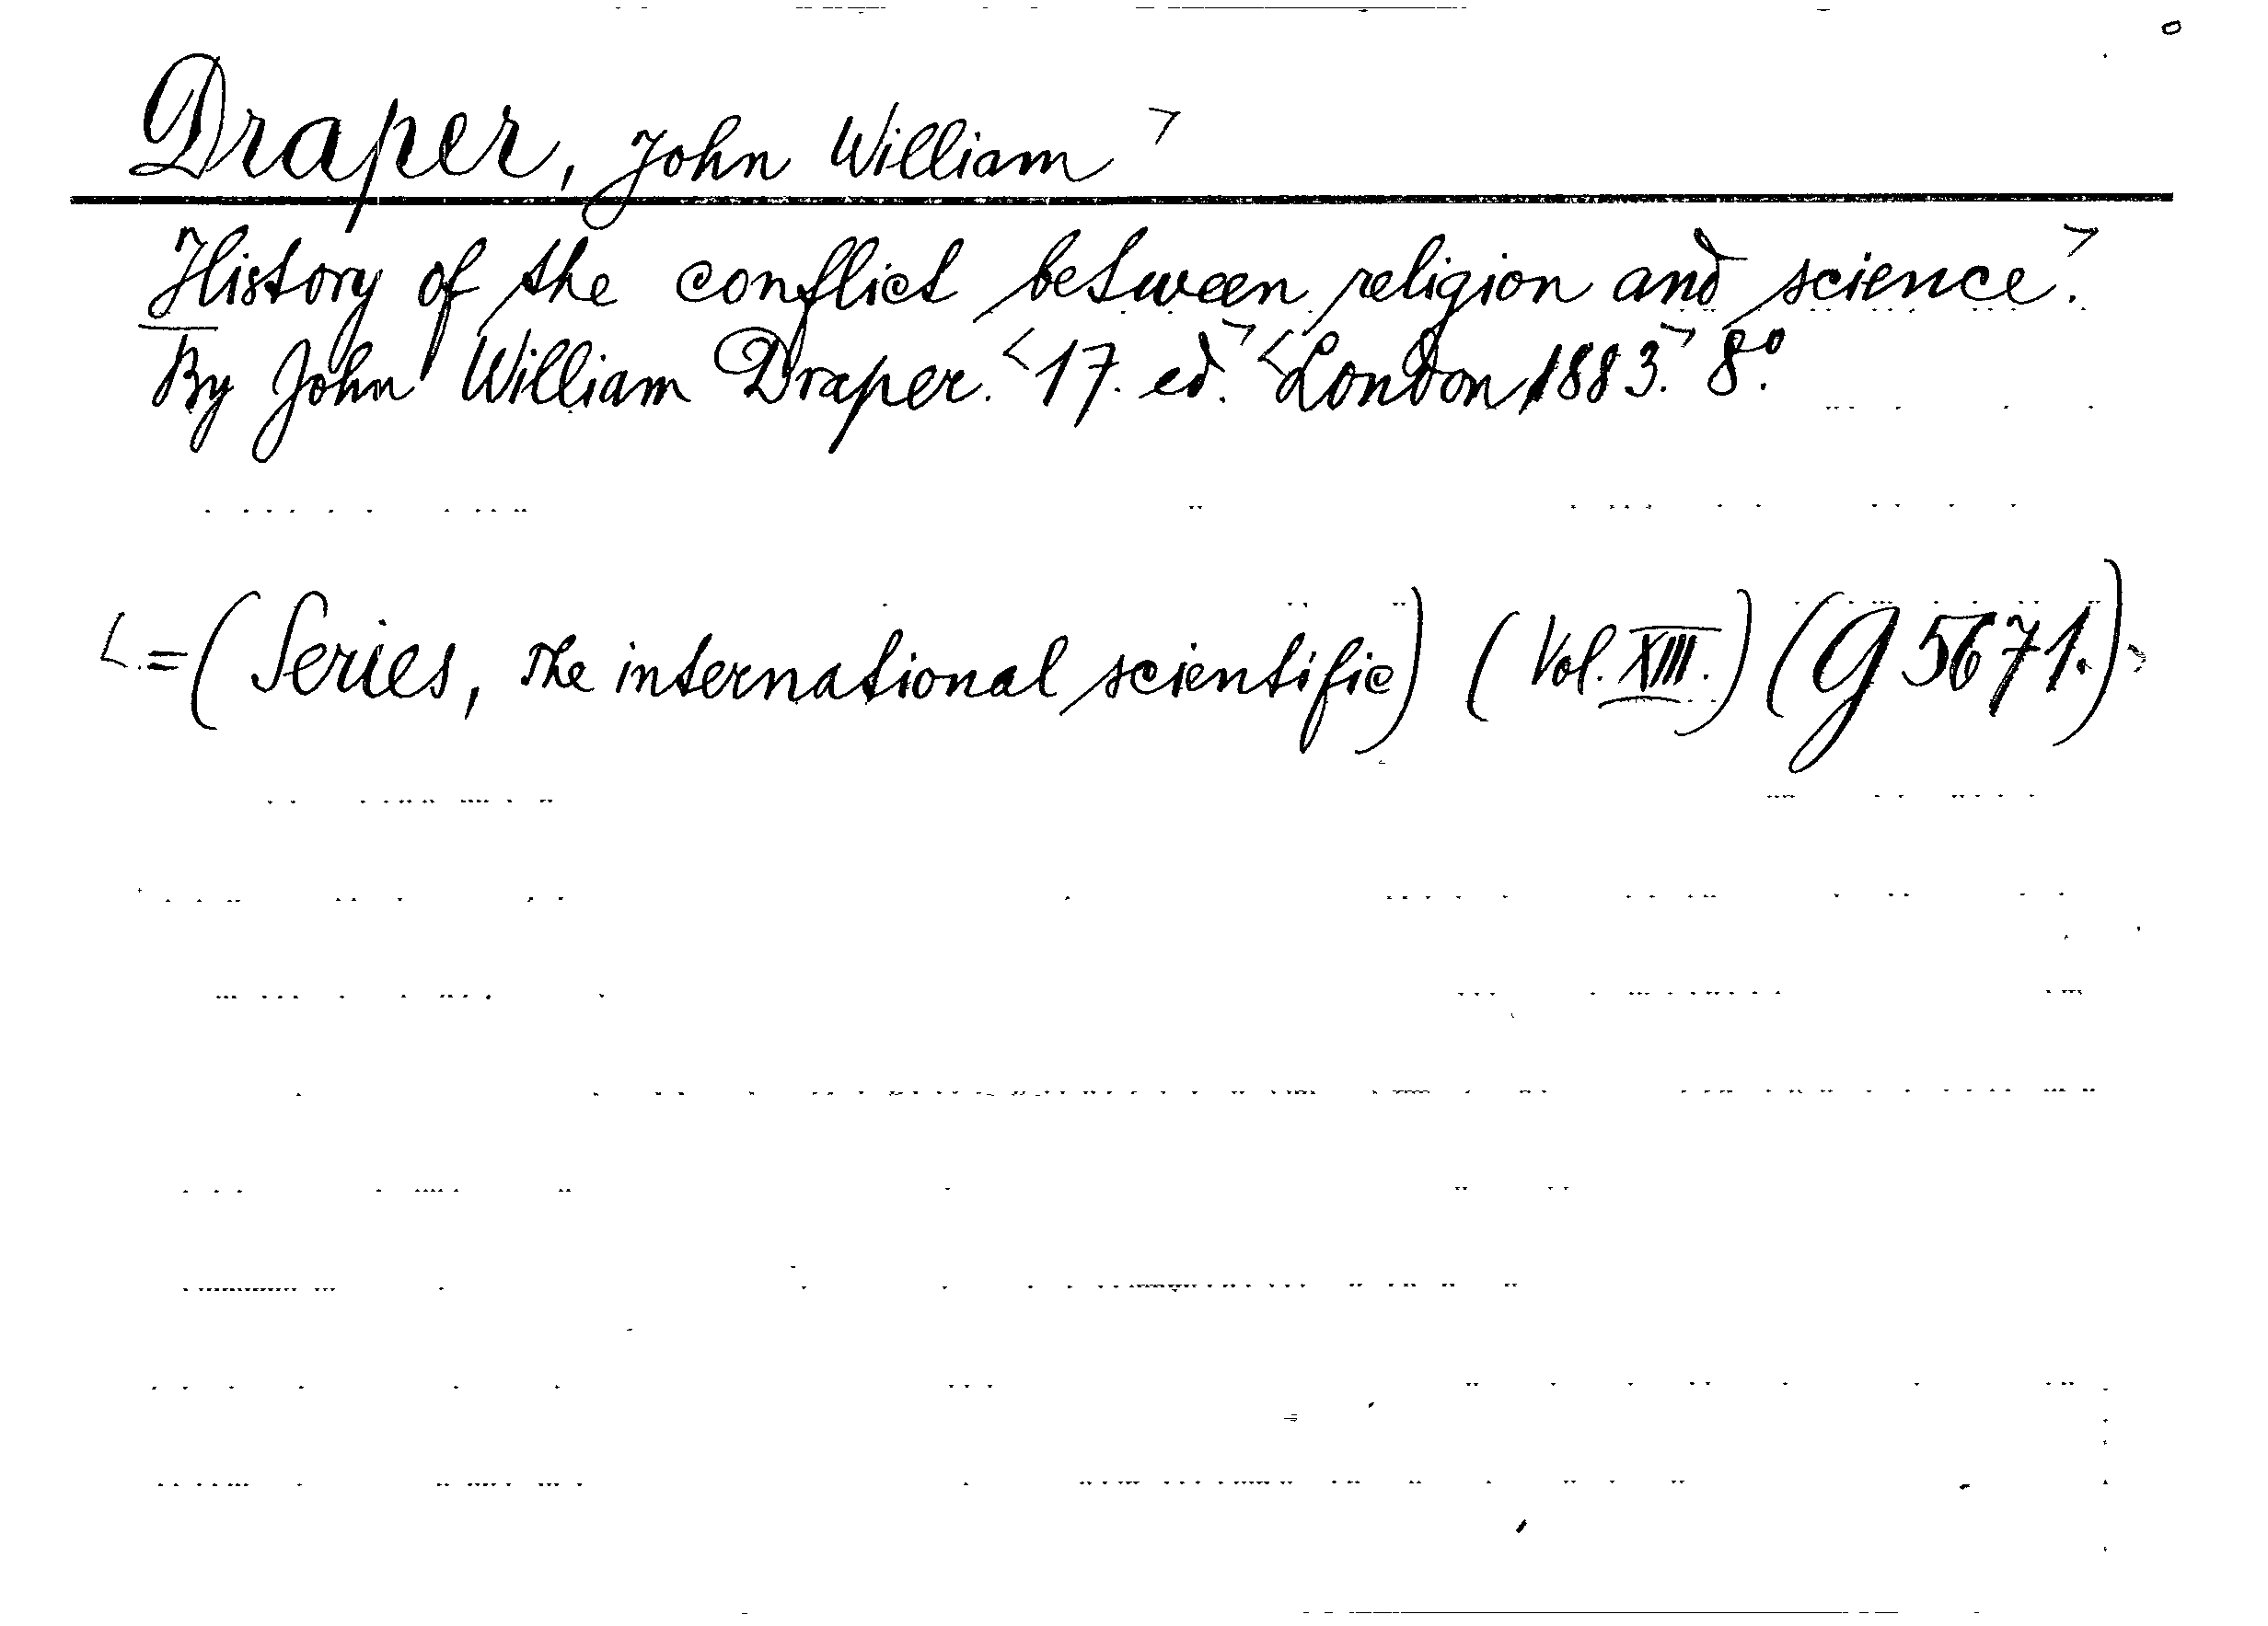 Draper, John William
History of the conflict between religion and science.
By John William Draper. 17. ed. London, 1883. 8.º
=(Series, The international scientific) (Vol. XIII.) (G 5671.)